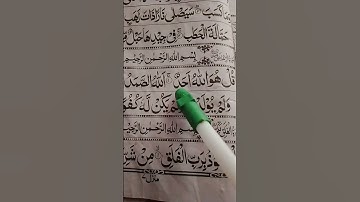 كَسَبَ سَيَصْلٰى نَارًا ذَاتَ لَهَبٍ
حَمَّالَةَ الْحَطَبِ فِيْ جِيْدِهَا حَبْلٌ
بِسْمِ اللهِ الرَّحْمٰنِ الرَّحِيْمِ
قُلْ هُوَ اللهُ اَحَدٌ اَللهُ الصَّمَدُ
وَلَمْ يُوْلَدْ يَكُنْ لَّهٗ كُفُوًا
بِسْمِ اللهِ الرَّحْمٰنِ الرَّحِيْمِ
بِرَبِّ الْفَلَقِ مِنْ شَرِّ
منزل